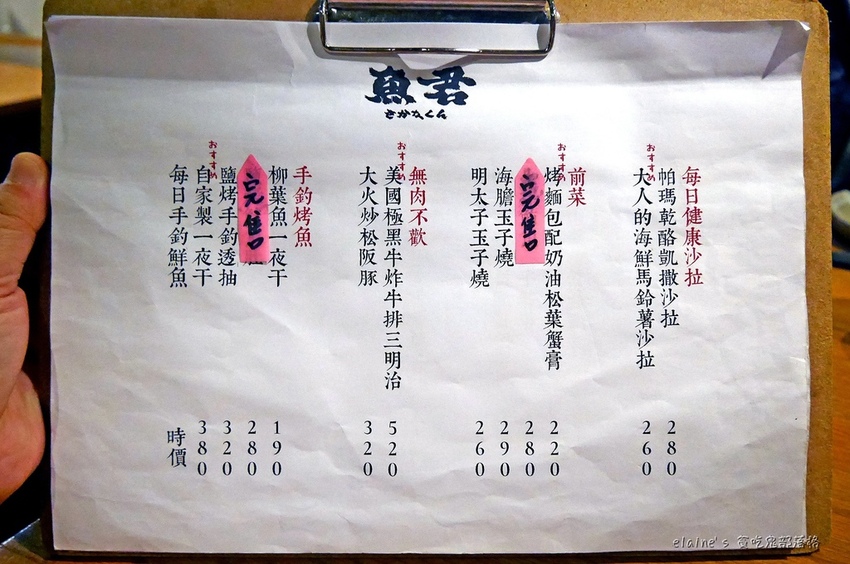 魚君
さかなくん
每日健康沙拉
帕瑪乾酪凱撒沙拉 280
おすすめ
大人的海鮮馬鈴薯沙拉 260
前菜
おすすめ
烤麵包配奶油松葉蟹膏 220
完售 280
海膽玉子燒 290
明太子玉子燒 260
無肉不歡
おすすめ
美國極黑牛炸牛排三明治 520
大火炒松阪豚 320
手釣烤魚
柳葉魚一夜干 190
完售 280
鹽烤手釣透抽 320
おすすめ
自家製一夜干 380
每日手釣鮮魚 時價
elaine's 貪吃鬼部落格